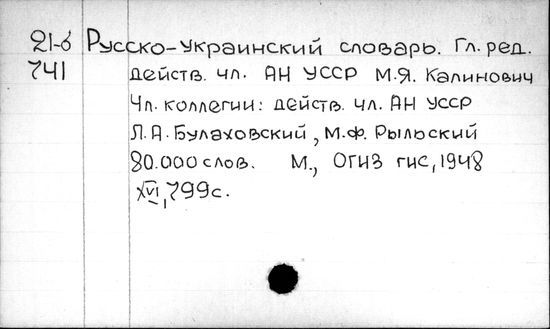 21-б Русско-украинский словарь. Гл. ред.
741 действ. чл. АН УССР М.Я. Калинович
Чл. коллегии: действ. чл. АН УССР
Л.А. Булаховский, М.Ф. Рыльский
80.000 слов. М., ОГИЗ ГИС, 1948
XVI, 799с.